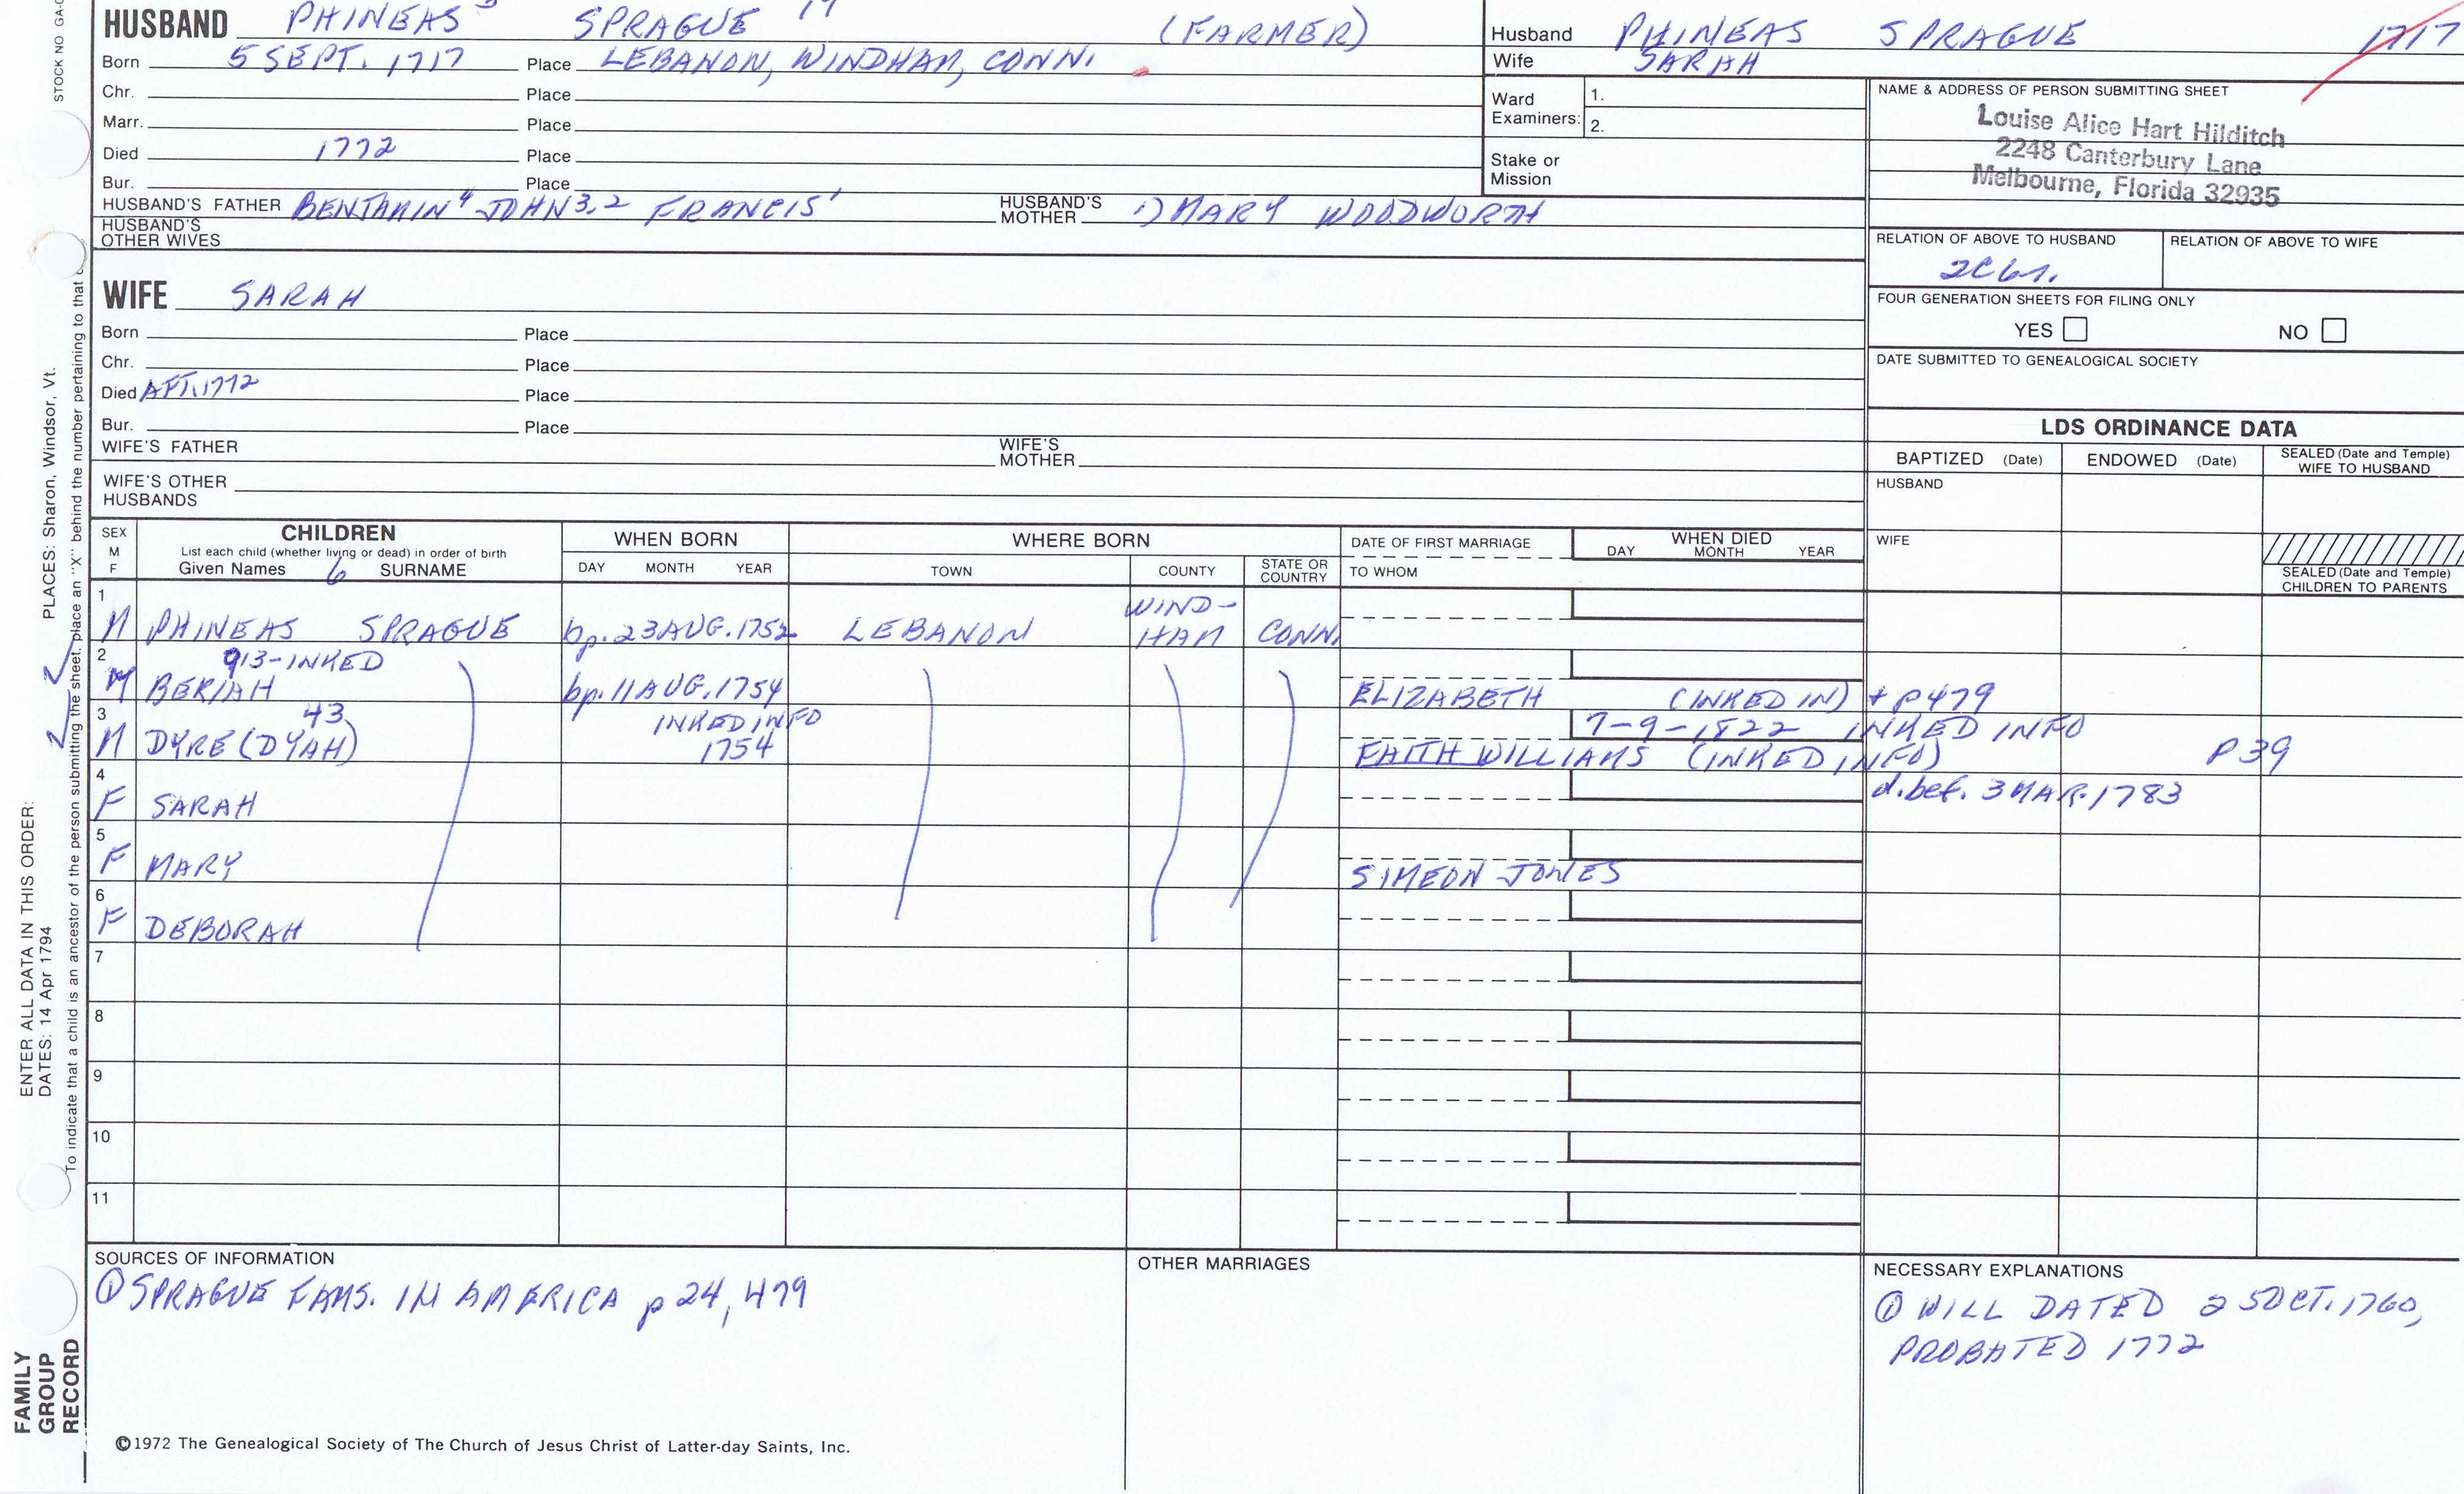 STOCK NO GA-
HUSBAND PHINEAS 5 SPRAGUE 17 (FARMER)
Born 5 SEPT. 1717 Place LEBANON, WINDHAM, CONN.
Chr. Place
Marr. Place
Died 1772 Place
Bur. Place
HUSBAND'S FATHER BENJAMIN 4 JOHN 3,2 FRANCIS 1 HUSBAND'S MOTHER 1) MARY WOODWORTH
HUSBAND'S OTHER WIVES
Husband PHINEAS SPRAGUE 1717
Wife SARAH
Ward Examiners: 1.
2.
Stake or Mission
NAME & ADDRESS OF PERSON SUBMITTING SHEET
Louise Alice Hart Hilditch
2248 Canterbury Lane
Melbourne, Florida 32935
RELATION OF ABOVE TO HUSBAND RELATION OF ABOVE TO WIFE
2C6r.
FOUR GENERATION SHEETS FOR FILING ONLY
YES NO
DATE SUBMITTED TO GENEALOGICAL SOCIETY
WIFE SARAH
Born Place
Chr. Place
Died AFT. 1772 Place
Bur. Place
WIFE'S FATHER WIFE'S MOTHER
WIFE'S OTHER HUSBANDS
LDS ORDINANCE DATA
BAPTIZED (Date) ENDOWED (Date) SEALED (Date and Temple) WIFE TO HUSBAND
HUSBAND
WIFE
SEALED (Date and Temple) CHILDREN TO PARENTS
SEX M F CHILDREN WHEN BORN WHERE BORN DATE OF FIRST MARRIAGE WHEN DIED
List each child (whether living or dead) in order of birth DAY MONTH YEAR
Given Names 6 SURNAME DAY MONTH YEAR TOWN COUNTY STATE OR COUNTRY TO WHOM
1 M PHINEAS SPRAGUE bp. 23 AUG. 1752 LEBANON WIND-HAM CONN.
913-INKED
2 M BERIAH bp. 11 AUG. 1754 ELIZABETH (INKED IN) + p479
43 INKED INFO 7-9-1822 INKED INFO
3 M DYRE (DYAH) 1754 FAITH WILLIAMS (INKED INFO) P 39
4 F SARAH d. bef. 3 MAR. 1783
5 F MARY SIMEON JONES
6 F DEBORAH
7
8
9
10
11
SOURCES OF INFORMATION
① SPRAGUE FAMS. IN AMERICA p 24, 479
OTHER MARRIAGES
NECESSARY EXPLANATIONS
① WILL DATED 25 OCT. 1760,
PROBATED 1772
©1972 The Genealogical Society of The Church of Jesus Christ of Latter-day Saints, Inc.
FAMILY
GROUP
RECORD
ENTER ALL DATA IN THIS ORDER:
DATES: 14 Apr 1794
PLACES: Sharon, Windsor, Vt.
To indicate that a child is an ancestor of the person submitting the sheet, place an "X" behind the number pertaining to that